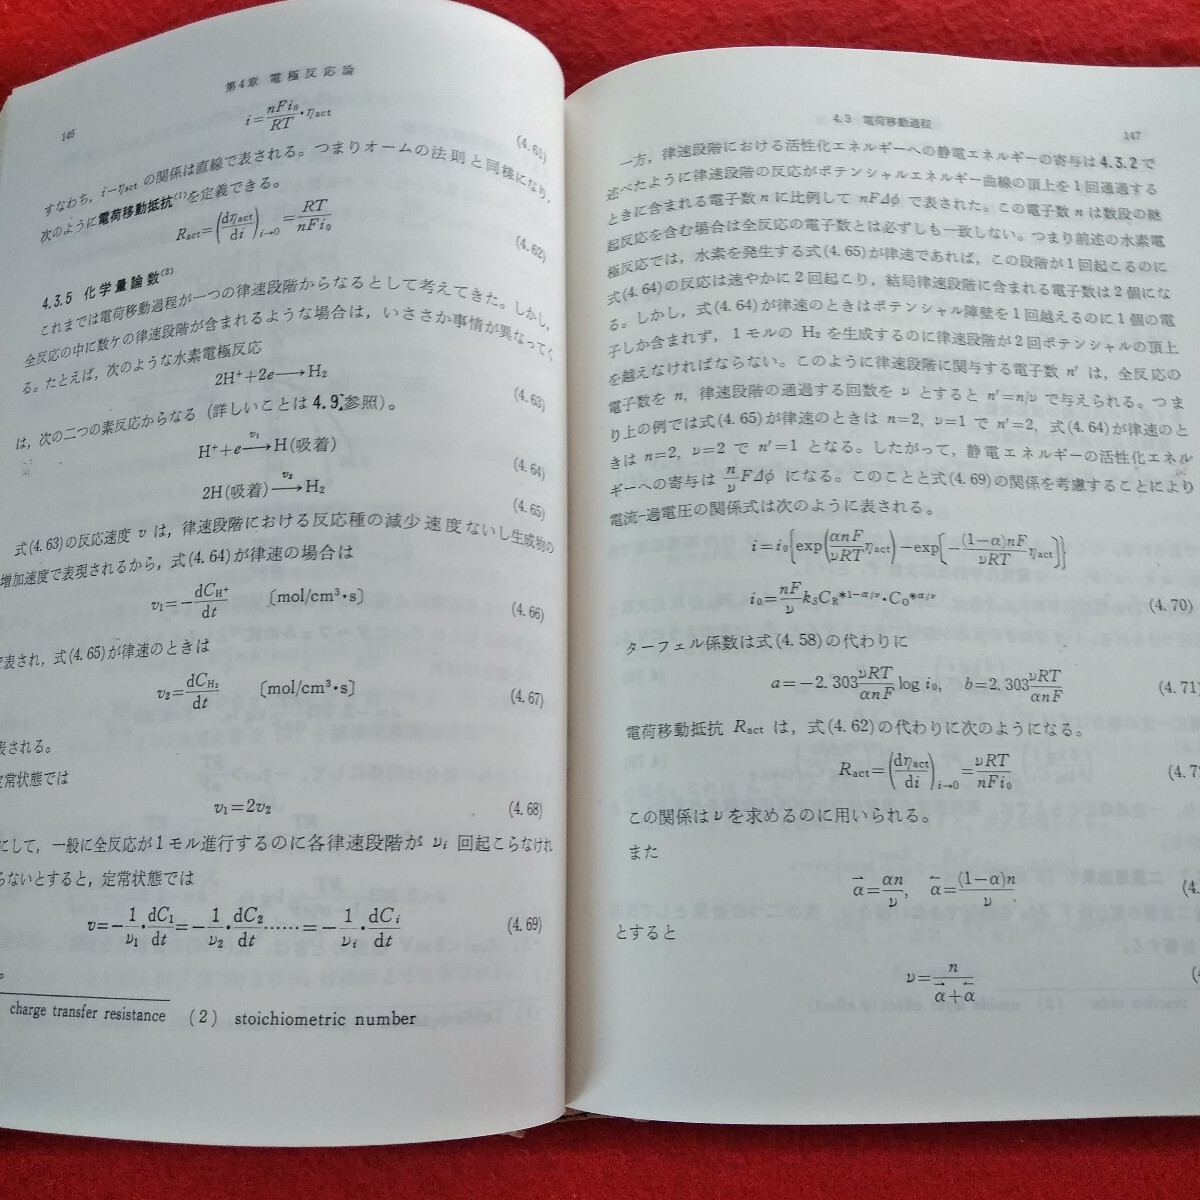 第4章 電極反応論
146
i=nFi₀/RT·η_act (4.61)
すなわち，i−η_act の関係は直線で表される。つまりオームの法則と同様になり，
次のように電荷移動抵抗⁽¹⁾を定義できる。
R_act=(dη_act/di)_i→0=RT/nFi₀ (4.62)
4.3.5 化学量論数⁽²⁾
これまでは電荷移動過程が一つの律速段階からなるとして考えてきた。しかし，
全反応の中に数ケの律速段階が含まれるような場合は，いささか事情が異なってく
る。たとえば，次のような水素電極反応
2H⁺+2e⟶H₂ (4.63)
は，次の二つの素反応からなる（詳しいことは 4.9 参照）。
H⁺+e—v₁→H(吸着) (4.64)
2H(吸着)—v₂→H₂ (4.65)
式(4.63)の反応速度 v は，律速段階における反応種の減少速度ないし生成物の
増加速度で表現されるから，式(4.64)が律速の場合は
v₁=−dC_H⁺/dt 〔mol/cm³·s〕 (4.66)
表され，式(4.65)が律速のときは
v₂=dC_H₂/dt 〔mol/cm³·s〕 (4.67)
表される。
定常状態では
v₁=2v₂ (4.68)
にして，一般に全反応が1モル進行するのに各律速段階が ν_i 回起こらなけれ
らないとすると，定常状態では
v=−1/ν₁·dC₁/dt=−1/ν₂·dC₂/dt……=−1/ν_i·dC_i/dt (4.69)
。
charge transfer resistance (2) stoichiometric number
4.3 電荷移動過程
147
一方，律速段階における活性化エネルギーへの静電エネルギーの寄与は4.3.2で
述べたように律速段階の反応がポテンシャルエネルギー曲線の頂上を1回通過する
ときに含まれる電子数 n に比例して nFΔϕ で表された。この電子数 n は数段の継
起反応を含む場合は全反応の電子数とは必ずしも一致しない。つまり前述の水素電
極反応では，水素を発生する式(4.65)が律速であれば，この段階が1回起こるのに
式(4.64)の反応は速やかに2回起こり，結局律速段階に含まれる電子数は2個にな
る。しかし，式(4.64)が律速のときはポテンシャル障壁を1回越えるのに1個の電
子しか含まれず，1モルの H₂ を生成するのに律速段階が2回ポテンシャルの頂上
を越えなければならない。このように律速段階に関与する電子数 n′ は，全反応の
電子数を n，律速段階の通過する回数を ν とすると n′=n/ν で与えられる。つま
り上の例では式(4.65)が律速のときは n=2, ν=1 で n′=2，式(4.64)が律速のと
きは n=2, ν=2 で n′=1 となる。したがって，静電エネルギーの活性化エネル
ギーへの寄与は n/ν FΔϕ になる。このことと式(4.69)の関係を考慮することにより
電流−過電圧の関係式は次のように表される。
i=i₀{exp(αnF/νRT η_act)−exp[−(1−α)nF/νRT η_act]}
i₀=nF/ν k_S C_R*¹⁻α/ν·C_O*α/ν (4.70)
ターフェル係数は式(4.58)の代わりに
a=−2.303 νRT/αnF log i₀, b=2.303 νRT/αnF (4.71)
電荷移動抵抗 R_act は，式(4.62)の代わりに次のようになる。
R_act=(dη_act/di)_i→0=νRT/nFi₀ (4.7
この関係は ν を求めるのに用いられる。
また
α⃗=αn/ν, α⃖=(1−α)n/ν (4.
とすると
ν=n/(α⃗+α⃖) (4